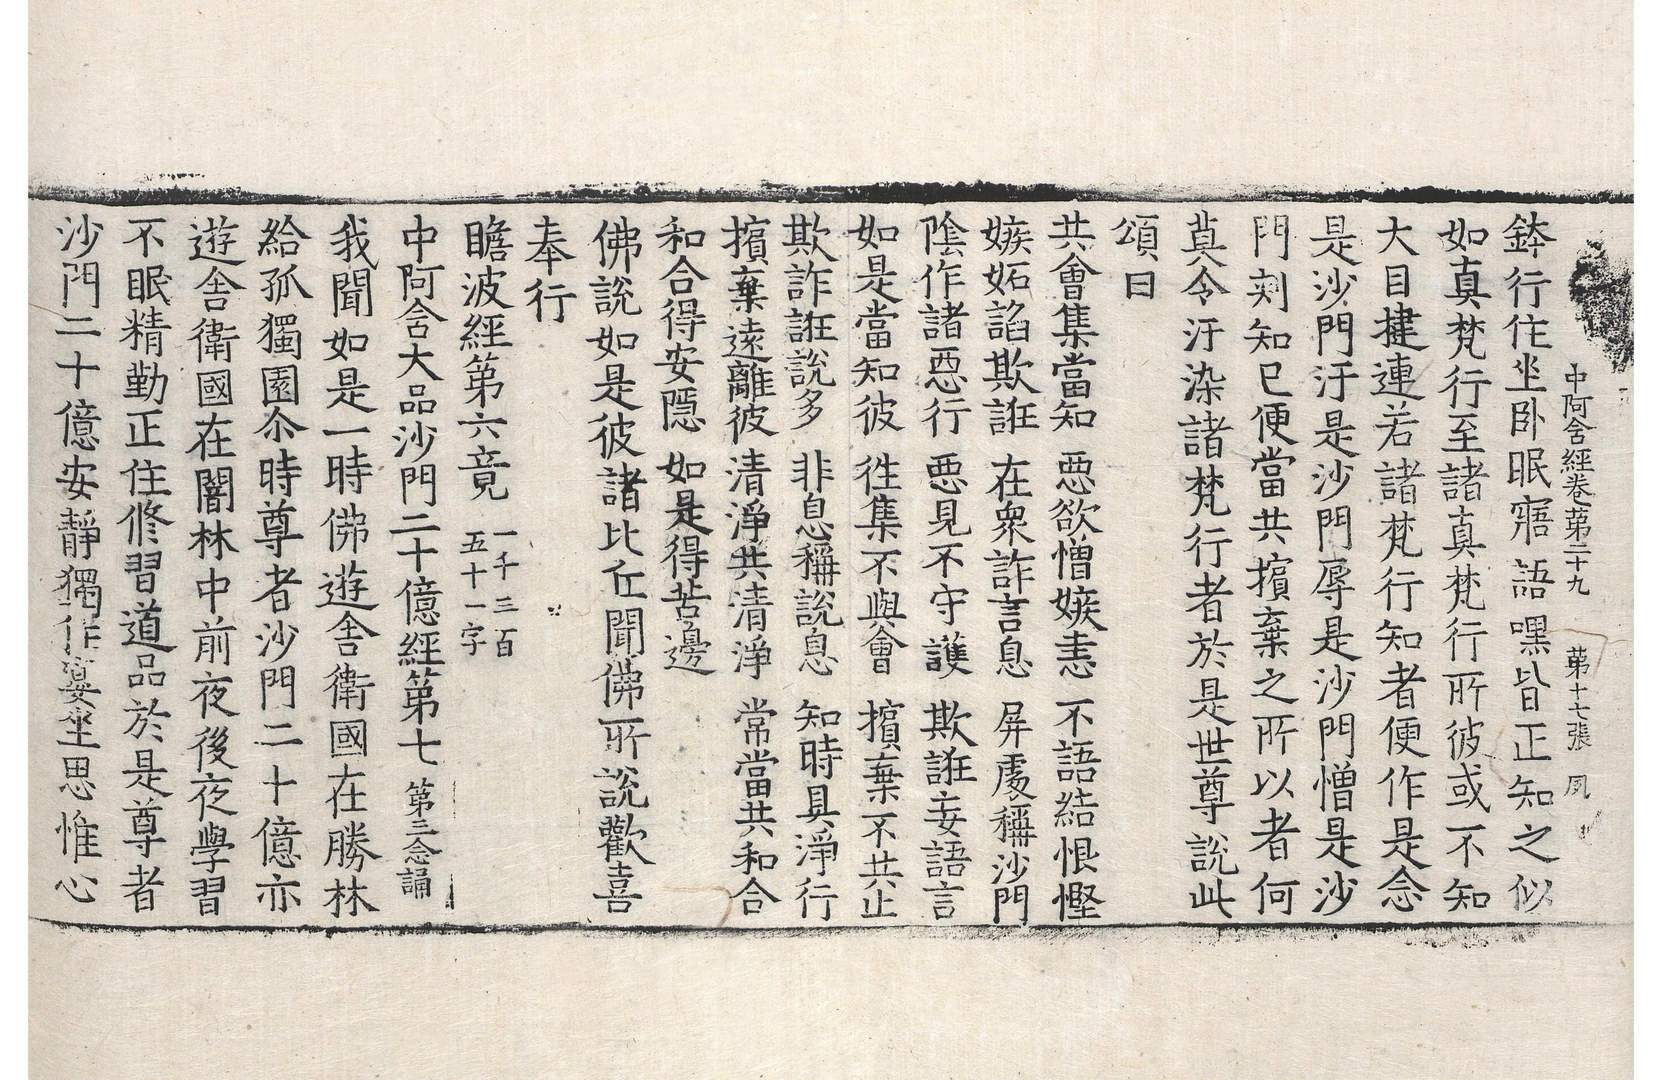 中阿含經卷苐二十九　苐十七張　夙
鉢行住坐卧眠寤語嘿皆正知之似
如真梵行至諸真梵行所彼或不知
大目揵連若諸梵行知者便作是念
是沙門汙是沙門辱是沙門憎是沙
門刾知已便當共擯棄之所以者何
莫令汙染諸梵行者於是世尊說此
頌曰
共會集當知　惡欲憎嫉恚　不語結恨慳
嫉妬諂欺誑　在衆詐言息　屏處稱沙門
陰作諸惡行　惡見不守護　欺誑妄語言
如是當知彼　徃集不與會　擯棄不共止
欺詐誑說多　非息稱說息　知時具淨行
擯棄遠離彼　清淨共清淨　常當共和合
和合得安隱　如是得苦邊
佛說如是彼諸比丘聞佛所說歡喜
奉行
瞻波經第六竟　一千三百五十一字
中阿含大品沙門二十億經第七　第三念誦
我聞如是一時佛遊舍衛國在勝林
給孤獨園尒時尊者沙門二十億亦
遊舍衛國在闇林中前夜後夜學習
不眠精勤正住修習道品於是尊者
沙門二十億安靜獨住宴坐思惟心